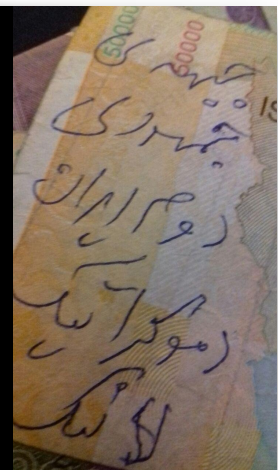 50000
50000
IS
جمهوری
دوم ایران
دموکراتیک
لائیک